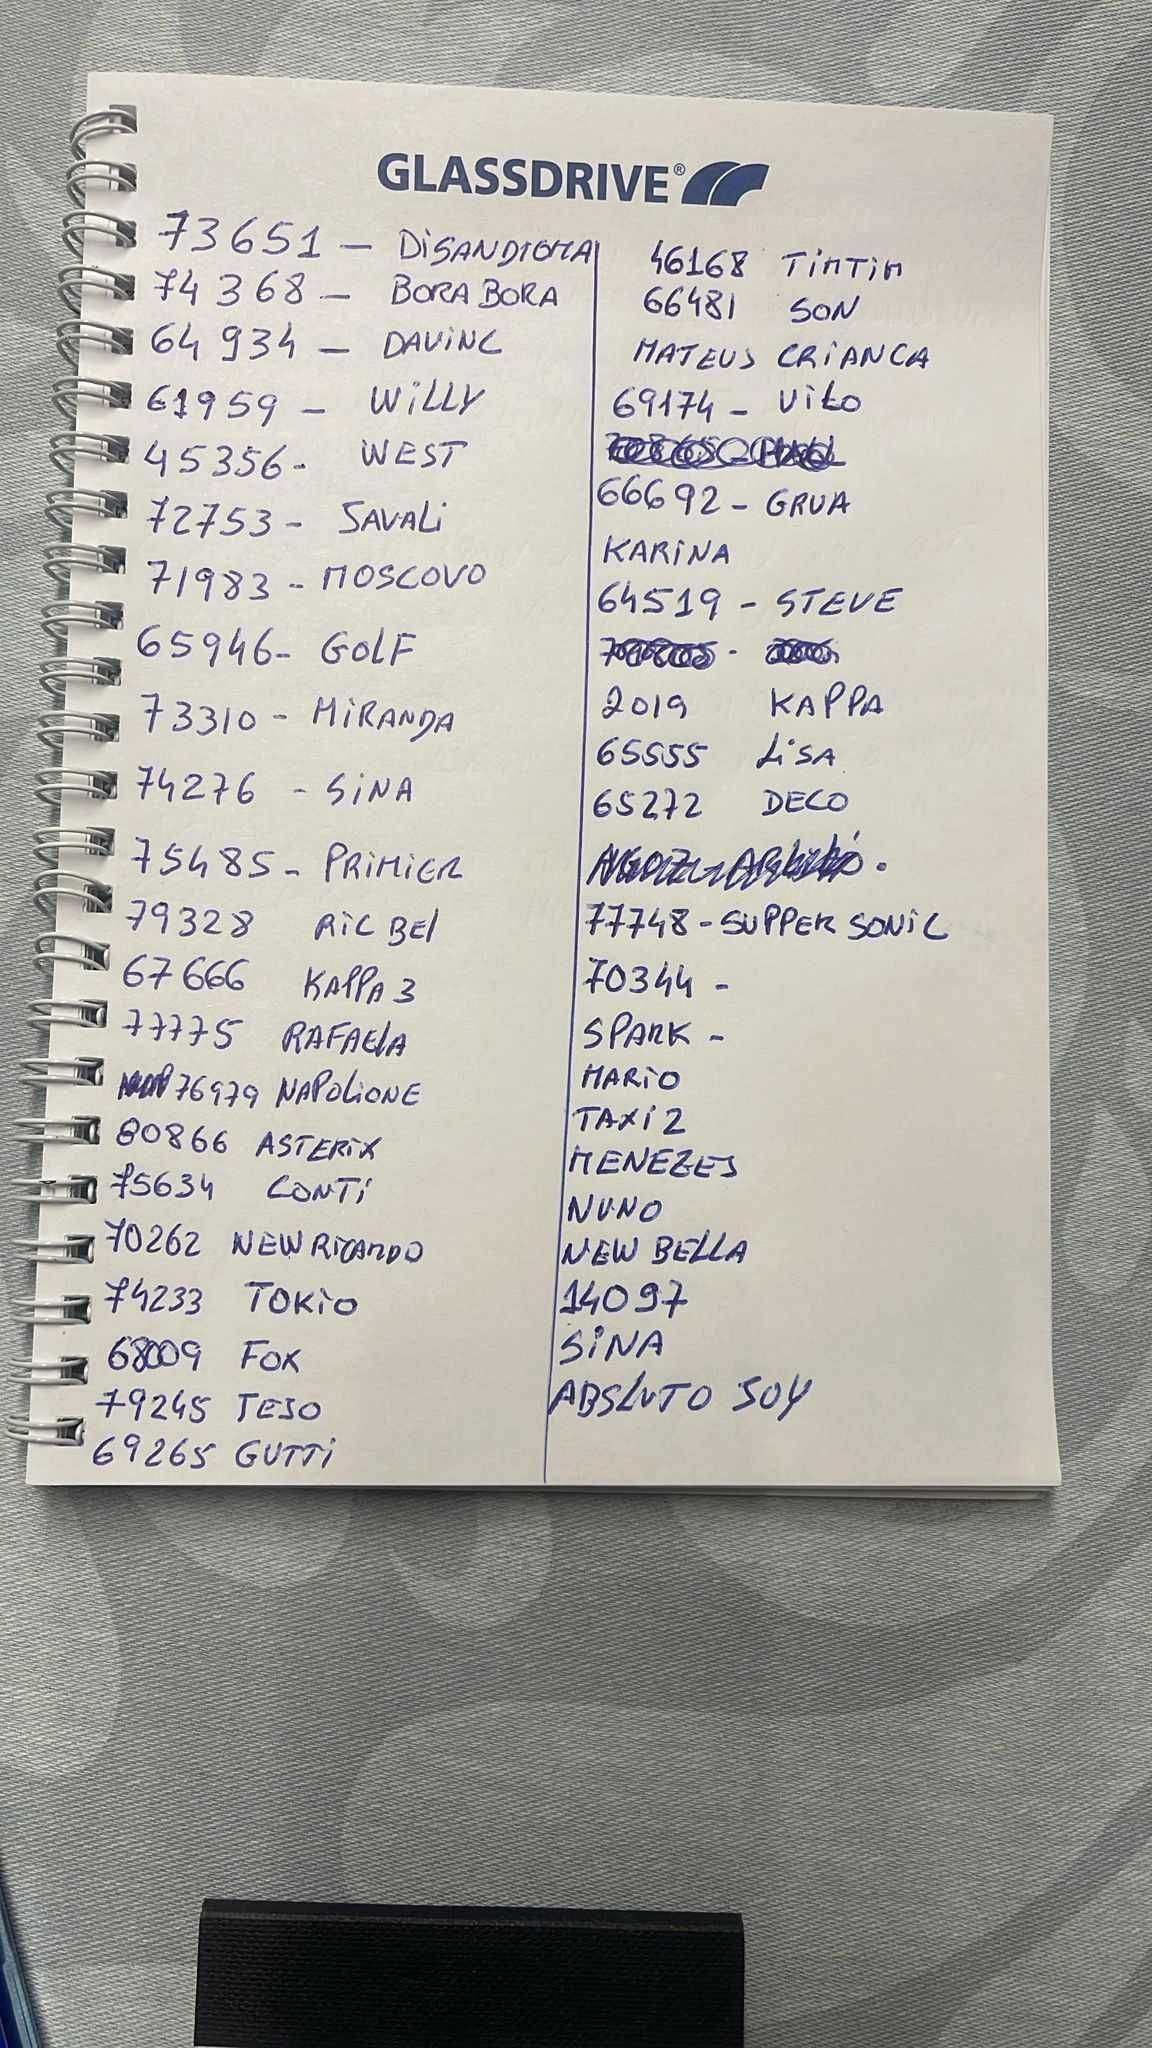 GLASSDRIVE®
73651 - DiSANDTOMA
74368 - BORA BORA
64934 - DAVINC
61959 - WiLLY
45356- WEST
72753 - SAVALi
71983 - MOSCOVO
65946- GOLF
73310 - MiRANDA
74276 - SiNA
75485 - PRiMiER
79328 RiC BEl
67666 KAPPA 3
77775 RAFAElA
76979 NAPOLiONE
80866 ASTERiX
75634 CONTi
70262 NEW RiCARDO
74233 TOKiO
68009 FOX
79245 TEJO
69265 GUTTi
46168 TiMTiM
66481 SON
MATEUS CRiANCA
69174 - ViTO
66692 - GRUA
KARiNA
64519 - STEVE
2019 KAPPA
65555 LiSA
65272 DECO
77748 - SUPPER SONiC
70344 -
SPARK -
MARiO
TAXi 2
MENEZES
NUNO
NEW BELLA
14097
SiNA
ABSLUTO SOY